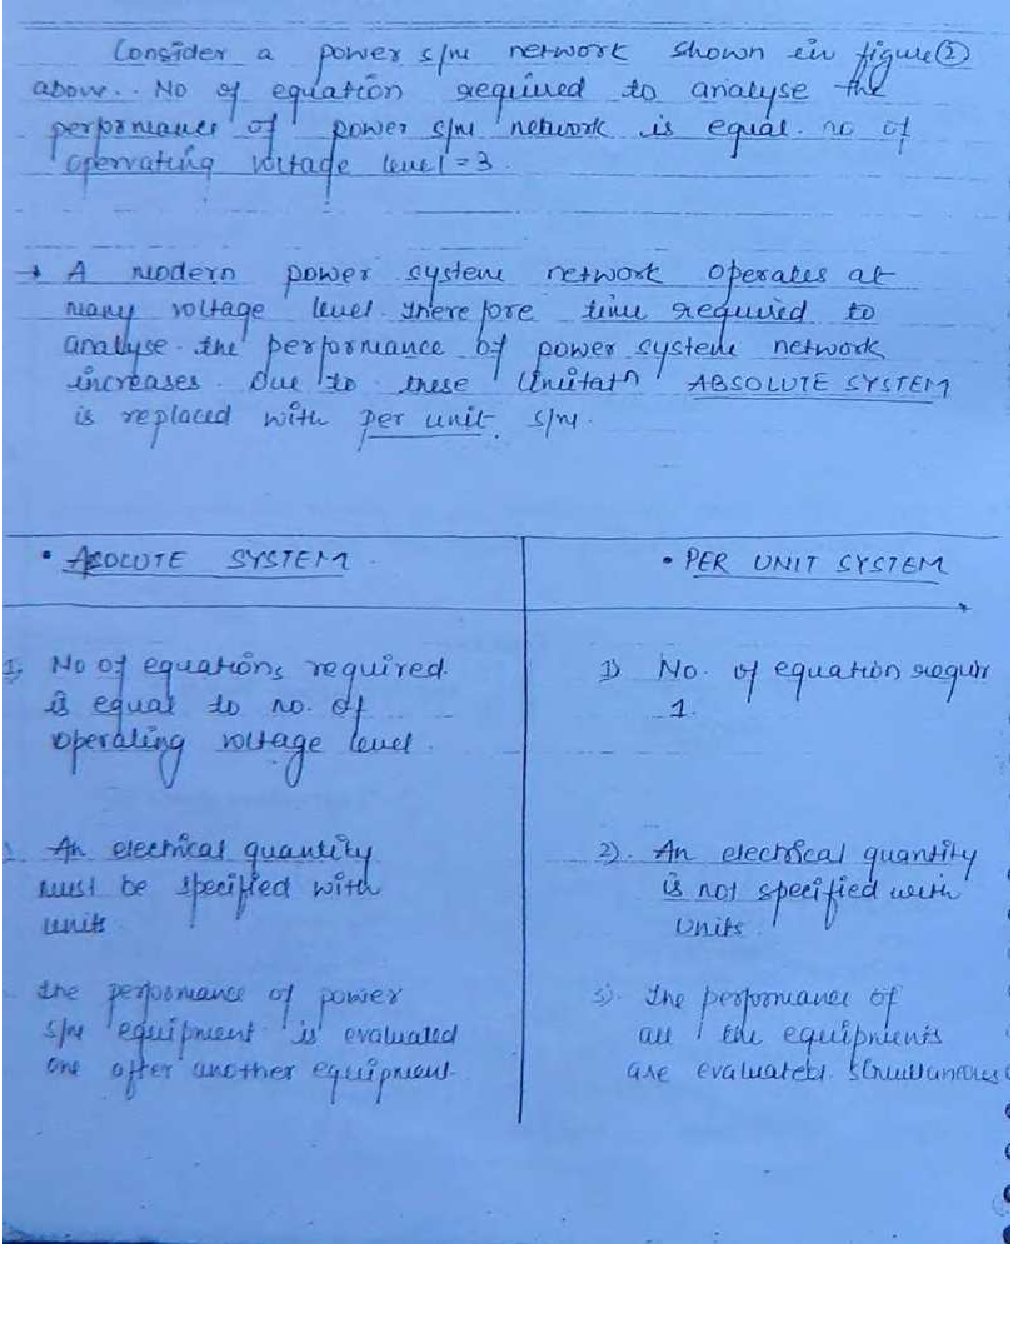 Consider a power s/m network shown in figure ②
above.. No of equation required to analyse the
performance of power s/m network is equal. no of
operrating voltage level = 3.
→ A modern power system network operates at
many voltage level. therefore time required to
analyse. the performance of power system network
increases. Due to these limitatⁿ ABSOLUTE SYSTEM
is replaced with per unit. s/m.
• ABSOLUTE SYSTEM
• PER UNIT SYSTEM
1, No of equations required.
is equal to no. of
operating voltage level.
1) No. of equation requir
1.
An electrical quantity
must be specified with
units
2). An electrical quantity
is not specified with
Units.
the performance of power
s/m equipment is evaluated
one after another equipment.
3). the performance of
all the equipments
are evaluated. simultaneous